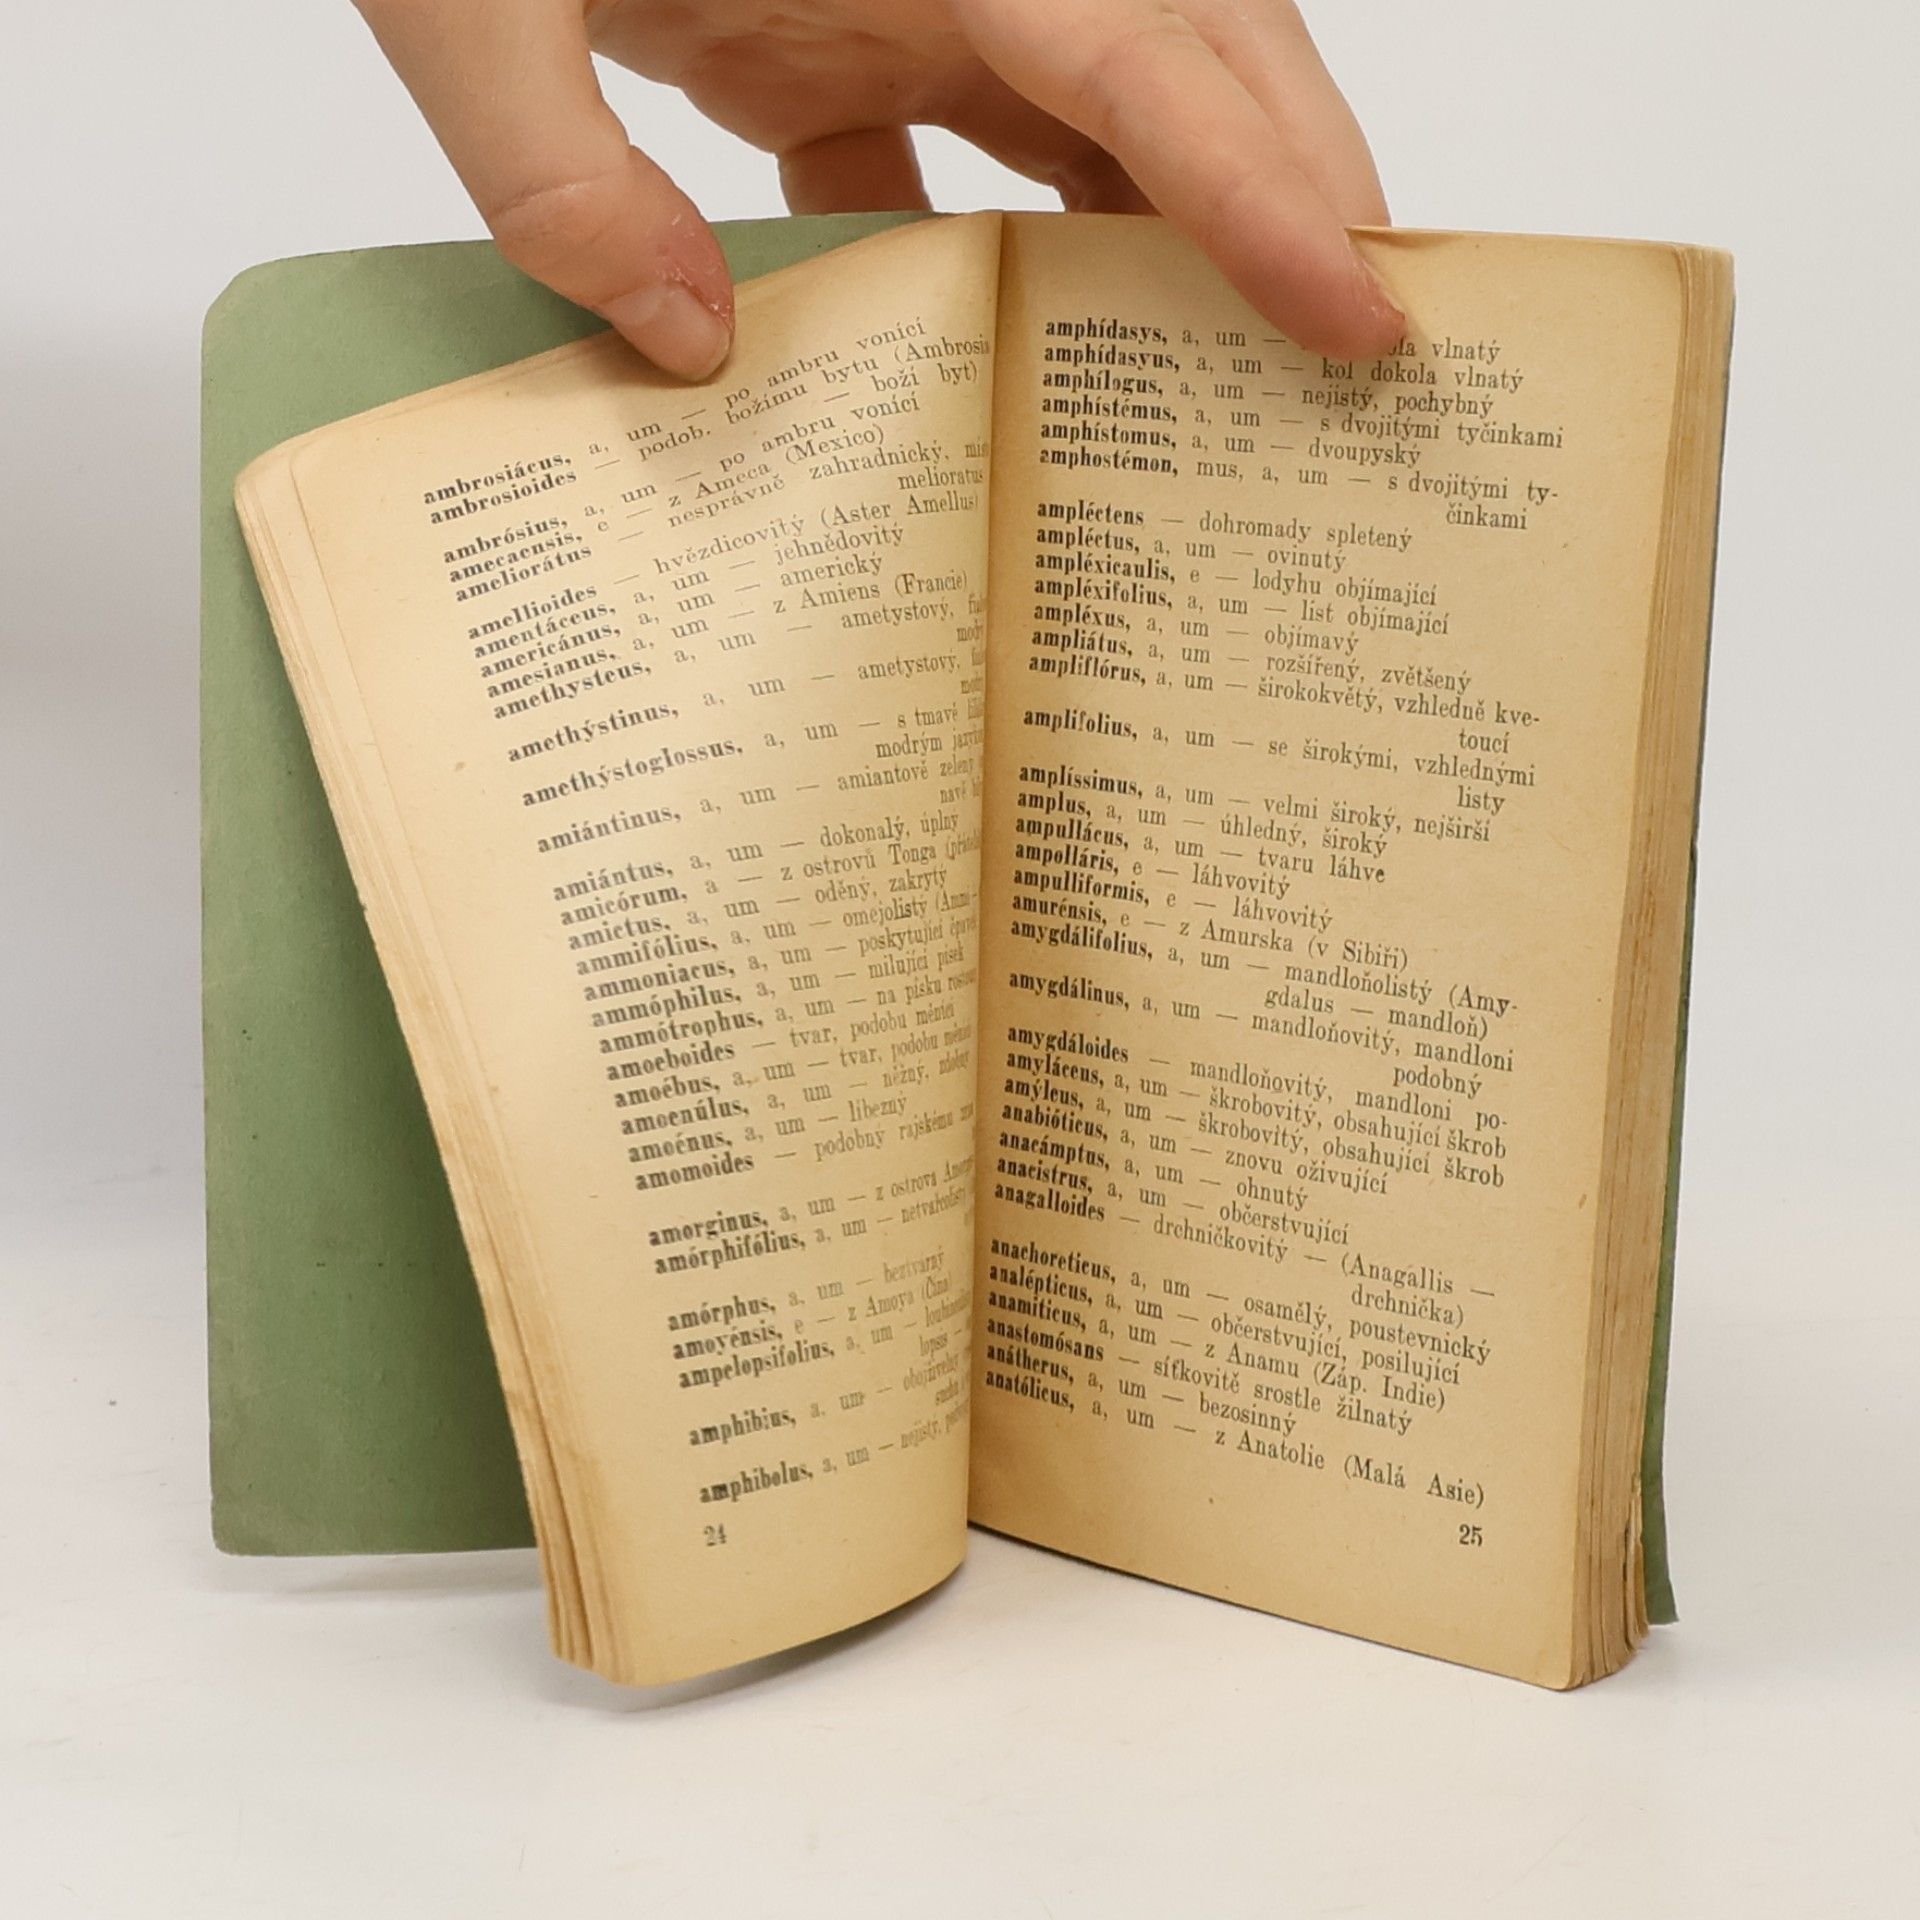 ambrosiácus, a, um — po ambru vonící
ambrosioides — podob. božímu bytu (Ambrosia
— boží byt)
ambrósius, a, um — po ambru vonící
amecaensis, e — z Ameca (Mexico)
ameliorátus — nesprávně zahradnický, mís
melioratus
amellioides — hvězdicovitý (Aster Amellus)
amentáceus, a, um — jehnědovitý
americánus, a, um — americký
amesianus, a, um — z Amiens (Francie)
amethysteus, a, um — ametystový,
modrý
amethýstinus, a, um — ametystový,
amethýstoglossus, a, um — s tmavě
modrým
amiántinus, a, um — amiantově zelený
navě
amiántus, a, um — dokonalý, úplný
amicórum, a — z ostrovů Tonga
amictus, a, um — oděný, zakrytý
ammifólius, a, um — omějolistý (Ammi —
ammoniacus, a, um — poskytující
ammóphilus, a, um — milující písek
ammótrophus, a, um — na písku
amoeboides — tvar, podobu měnící
amoébus, a, um — tvar, podobu
amoenúlus, a, um — něžný,
amoénus, a, um — líbezný
amomoides — podobný rajskému
amorginus, a, um — z ostrova
amórphifólius, a, um —
amórphus, a, um — beztvárný
amoyénsis, e — z Amoya (Čína)
ampelopsifolius, a, um —
lopsis —
amphibius, a, um — obojživelný
amphibolus, a, um — nejistý,
24
amphídasys, a, um — vlnatý
amphídasyus, a, um — kol dokola vlnatý
amphílogus, a, um — nejistý, pochybný
amphístémus, a, um — s dvojitými tyčinkami
amphístomus, a, um — dvoupyský
amphostémon, mus, a, um — s dvojitými ty-
činkami
ampléctens — dohromady spletený
ampléctus, a, um — ovinutý
ampléxicaulis, e — lodyhu objímající
ampléxifolius, a, um — list objímající
ampléxus, a, um — objímavý
ampliátus, a, um — rozšířený, zvětšený
ampliflórus, a, um — širokokvětý, vzhledně kve-
toucí
amplifolius, a, um — se širokými, vzhlednými
listy
amplíssimus, a, um — velmi široký, nejširší
amplus, a, um — úhledný, široký
ampullácus, a, um — tvaru láhve
ampolláris, e — láhvovitý
ampulliformis, e — láhvovitý
amurénsis, e — z Amurska (v Sibiři)
amygdálifolius, a, um — mandloňolistý (Amy-
gdalus — mandloň)
amygdálinus, a, um — mandloňovitý, mandloni
podobný
amygdáloides — mandloňovitý, mandloni po-
amyláceus, a, um — škrobovitý, obsahující škrob
amýleus, a, um — škrobovitý, obsahující škrob
anabióticus, a, um — znovu oživující
anacámptus, a, um — ohnutý
anacistrus, a, um — občerstvující
anagalloides — drchničkovitý — (Anagallis —
drchnička)
anachoreticus, a, um — osamělý, poustevnický
analépticus, a, um — občerstvující, posilující
anamiticus, a, um — z Anamu (Záp. Indie)
anastomósans — síťkovitě srostle žilnatý
anátherus, a, um — bezosinný
anatólicus, a, um — z Anatolie (Malá Asie)
25